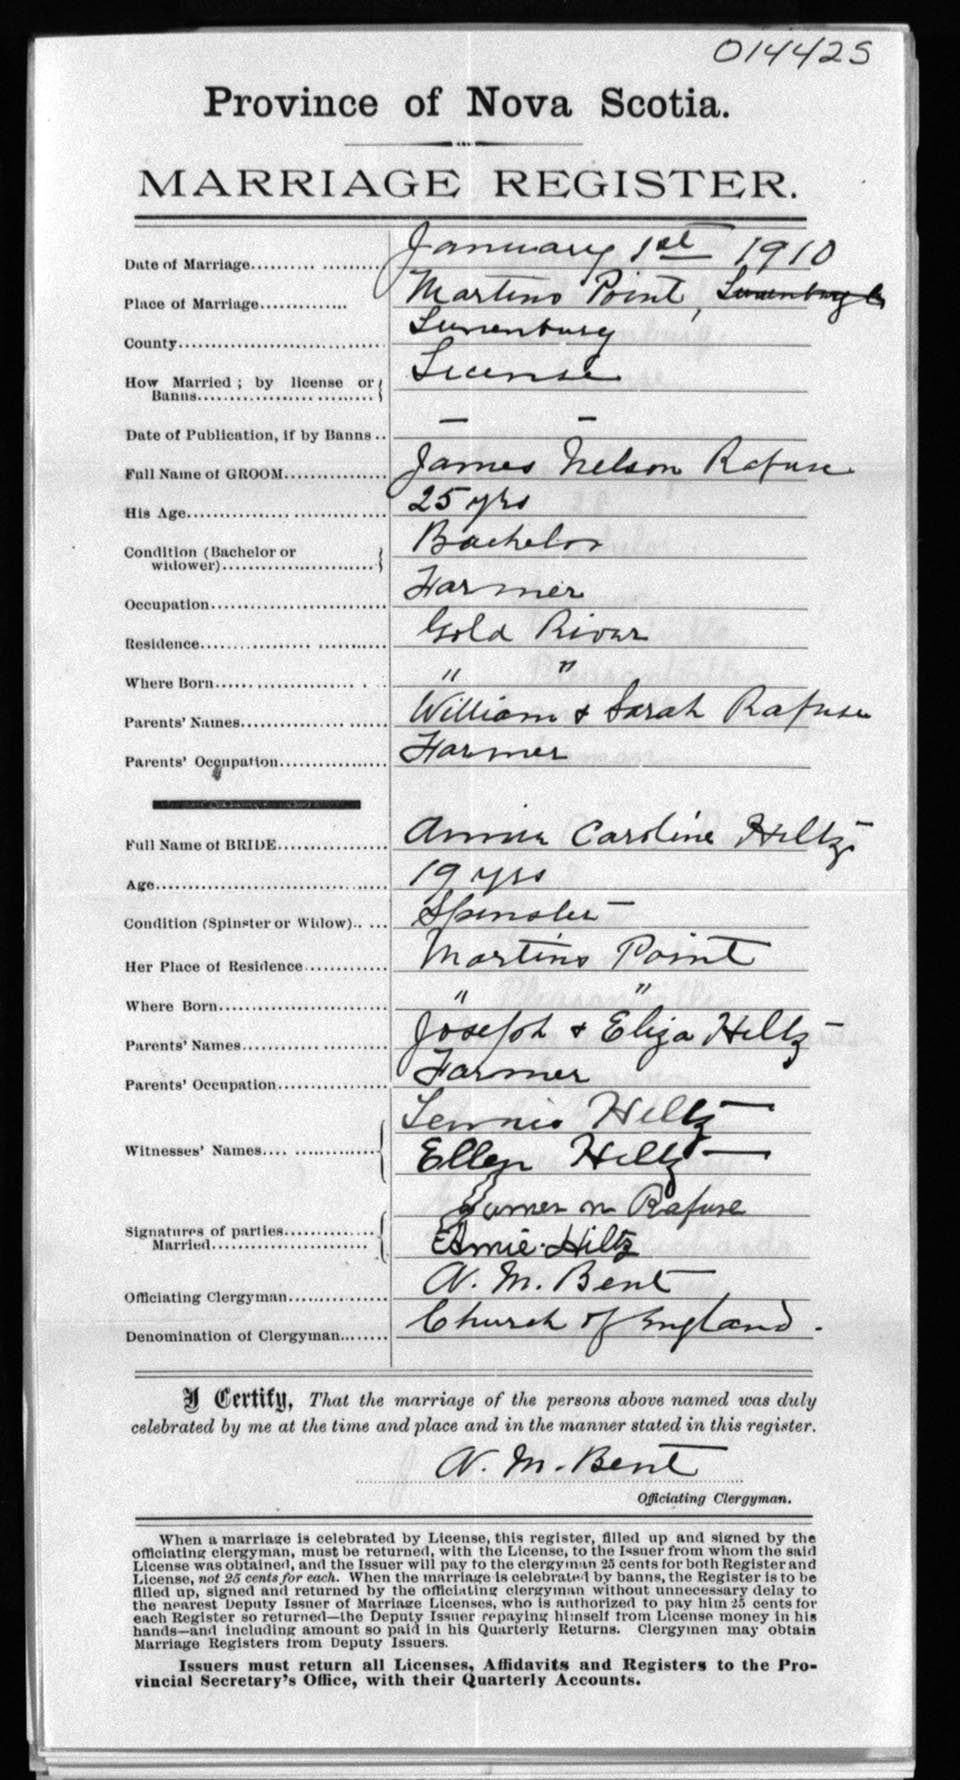 014425
Province of Nova Scotia.
MARRIAGE REGISTER.
Date of Marriage.................... January 1st 1910
Place of Marriage.............. Martins Point, Lunenburg Co
County............................... Lunenburg
How Married; by license or Banns........................... License
Date of Publication, if by Banns.. — —
Full Name of GROOM............... James Nelson Rafuse
His Age............................... 25 yrs
Condition (Bachelor or widower)......................... Bachelor
Occupation.......................... Farmer
Residence........................... Gold River
Where Born......................... " "
Parents' Names..................... William & Sarah Rafuse
Parents' Occupation................ Farmer
Full Name of BRIDE................ Annie Caroline Hiltz
Age................................... 19 yrs
Condition (Spinster or Widow)..... Spinster
Her Place of Residence............ Martins Point
Where Born......................... " "
Parents' Names..................... Joseph & Eliza Hiltz
Parents' Occupation................ Farmer
Witnesses' Names.................. Hiltz
Ellen Hiltz
Signatures of parties Married........................ James N Rafuse
Annie Hiltz
Officiating Clergyman.............. N. M. Bent
Denomination of Clergyman........ Church of England.
I Certify, That the marriage of the persons above named was duly
celebrated by me at the time and place and in the manner stated in this register.
N. M. Bent
Officiating Clergyman.
When a marriage is celebrated by License, this register, filled up and signed by the
officiating clergyman, must be returned, with the License, to the Issuer from whom the said
License was obtained, and the Issuer will pay to the clergyman 25 cents for both Register and
License, not 25 cents for each. When the marriage is celebrated by banns, the Register is to be
filled up, signed and returned by the officiating clergyman without unnecessary delay to
the nearest Deputy Issuer of Marriage Licenses, who is authorized to pay him 25 cents for
each Register so returned—the Deputy Issuer repaying himself from License money in his
hands—and including amount so paid in his Quarterly Returns. Clergymen may obtain
Marriage Registers from Deputy Issuers.
Issuers must return all Licenses, Affidavits and Registers to the Pro-
vincial Secretary's Office, with their Quarterly Accounts.